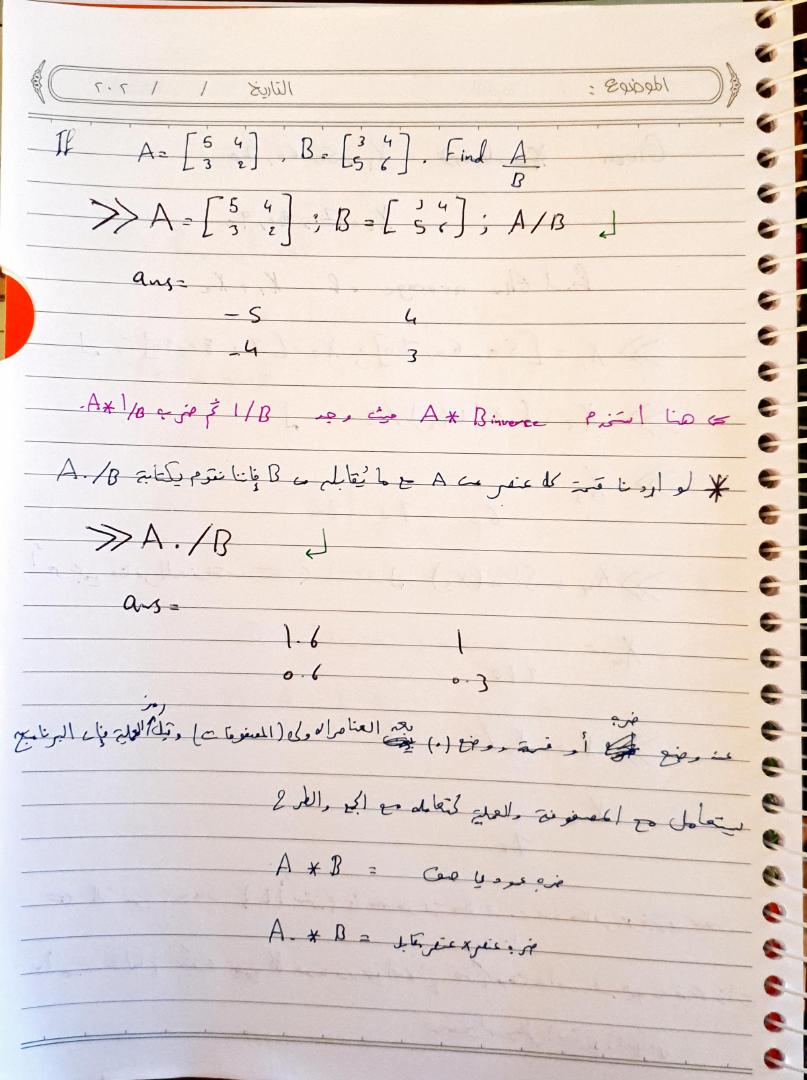 الموضوع : التاريخ / / ٢٠٢
If A = [5 4 3 2] , B = [3 4 5 6] . Find A/B
>> A = [5 4 3 2] ; B = [3 4 5 6] ; A/B ↲
ans=
-5 4
-4 3
هنا استخدم A * B inverse حيث وجد 1/B ثم ضرب A*1/B.
* لو اردنا قسمة كل عنصر من A مع ما يُقابله من B فإننا نقوم بكتابة A./B
>> A ./B ↲
ans=
1.6 1
0.6 0.3
عند وضع ضرب أو قسمة ووضع (.) بعد العناصر الاولى (المصفوفات) وقبل رمز العملية فإن البرنامج
سيتعامل مع المصفوفة والعملية كتعامله مع الجمع والطرح
A * B = ضرب عمود يا صف
A. * B = ضرب عنصر * عنصر مقابل